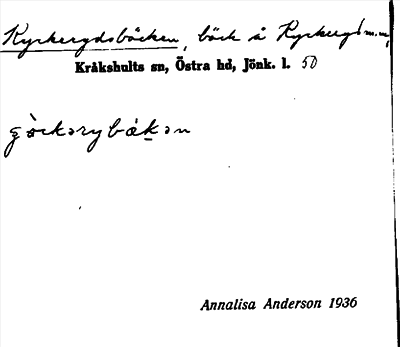 Kyrkerydsbäcken, bäck å Kyrkeryd m.m.,
Kråkshults sn, Östra hd, Jönk. l. 50
Annalisa Anderson 1936